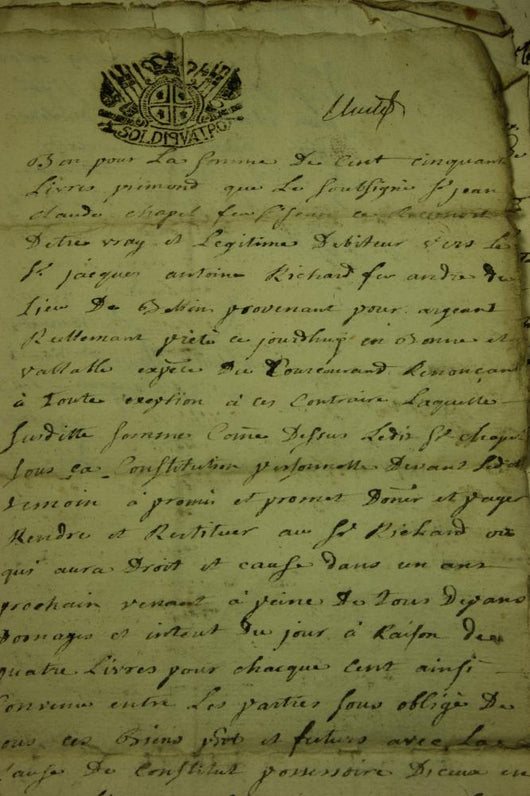 SOLDI QVATRO
Bon pour La somme De Cent cinquante
Livres piémond que Le soussigné Sr jean
claude chapel feu
Detre vray et Legitime Debiteur vers Le
Sr jacques antoine Richard feu andre de
Lieu De provenant pour argent
Reellement prété ce jourdhuy en Bonne et
vallable espéce Du Courant Renonçant
à Toute exeption à ces Contraire Laquelle
susditte somme Come Dessus Ledit Sr chapel
sous sa Constitution personnelle Devant
temoin à promis et promet Donér et payer
Rendre et Restituer au Sr Richard ou
qui aura Droit et cause dans un ans
prochain venant à peine De tous Depans
Domages et interet Du jour à Raison de
quatre Livres pour chacque Cent ainsi
Convenu entre Les parties sous obligé De
tous ces Biens pnt et futurs avec La
Clause De Constitut possessoire